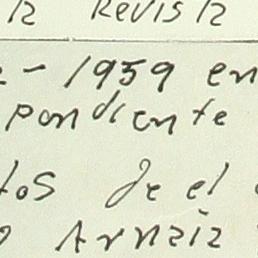 R REVISR
- 1959 en
pondiente
tos de el
o Arnaiz